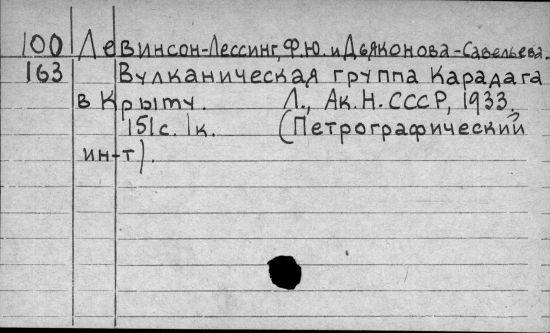 100 Левинсон-Лессинг, Ф.Ю. и Дьяконова-Савельева.
163 Вулканическая группа Карадага
в Крыму. Л., Ак. Н. СССР, 1933.
151с. 1к. (Петрографический
ин-т).